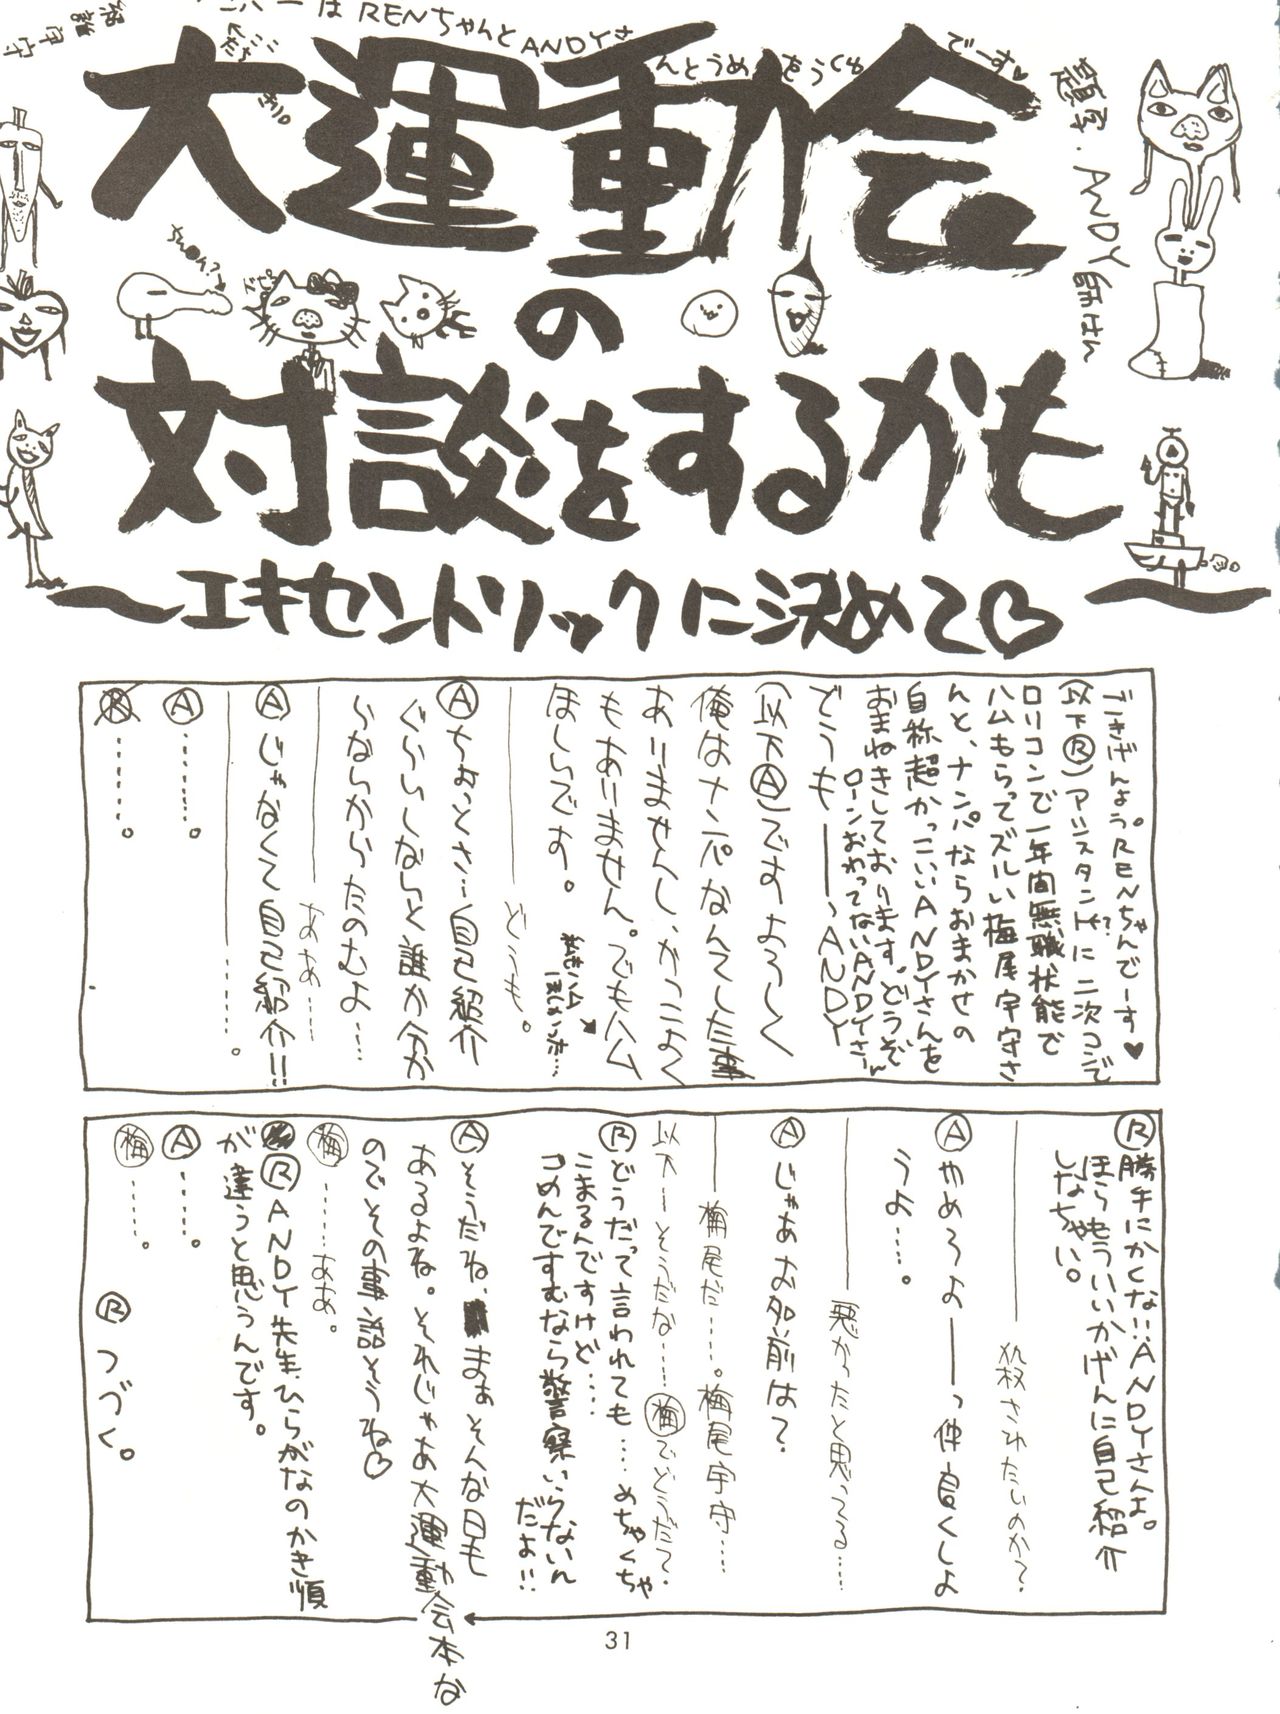 大運動会
の
対談をするかも
〜エキセントリックに決めて♡〜
はRENちゃんとANDYさ
んとうめ
でーす♡
題字・ANDY師はん
ごきげんようRENちゃんでーす♥
(以下Ⓡ)アシスタントに二次コンで
ロリコンで一年間無職状態で
ハムもらってズルい梅尾宇守さ
んと、ナンパならおまかせの
自称超かっこいいANDYさんを
おまねきしております。どうぞ
ローンおわってないANDYさん
どうもー――、ANDY
(以下Ⓐ)ですよろしく
俺はナンパなんてした事
ありませんし、かっこよく
もありません。でもハム
ほしいです。
――――どうも。
Ⓐちょっとさ…自己紹介
ぐらいしないと誰か分か
らないからたのむよ……
――――ああ……
Ⓐじゃなくて自己紹介!!
――――………。
Ⓐ………。
Ⓡ………。
Ⓡ勝手にかくな!!ANDYさんよ。
ほらもういいかげんに自己紹介
しなちゃい。
――――殺されたいのか?
Ⓐやめろよ――っ仲良くしよ
うよ……。
――――悪かったと思ってる……
Ⓐじゃあお名前は?
――――梅尾だ……。梅尾宇守……
以下―そうだな……㊣梅でどうだ?
Ⓡどうだって言われても……めちゃくちゃ
こまるんですけど……
ごめんですむなら警察いらないん
だよ!!
Ⓐそうだね、まぁそんな日も
あるよね。それじゃあ大運動会本な
のでその事話そうね♡
梅……ああ。
ⓇANDY先生、ひらがなのかき順
が違うと思うんです。
Ⓐ……。
梅……。
Ⓡつづく。
31